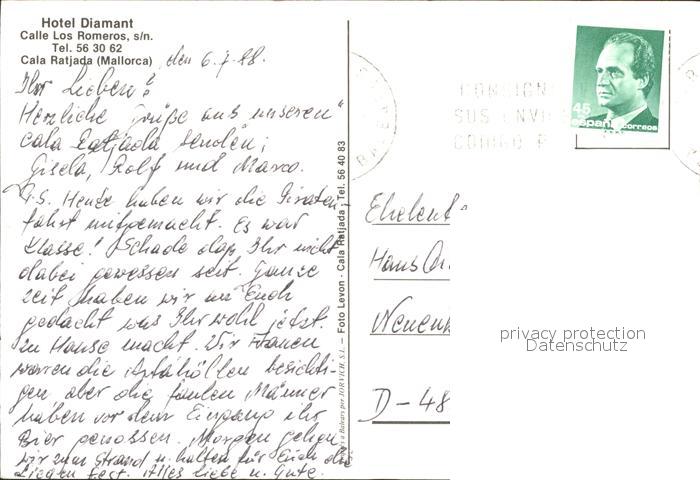 Hotel Diamant
Calle Los Romeros, s/n.
Tel. 56 30 62
Cala Ratjada (Mallorca)
den 6.7.88.
Ihr Lieben!
Herzliche Grüße aus unseren
Cala Ratjada senden,
Gisela, Rolf und Marco.
P.S. Heute haben wir die Piraten
fahrt mitgemacht. Es war
Klasse! Schade dap Ihr nicht
dabei gewessen seit. Ganze
Zeit haben wir an Euch
gedacht was Ihr wohl jetzt.
zu Hause macht. Wir Frauen
waren die Artáhöllen besichti-
gen, aber die faulen Männer
haben vor dem Eingang ihr
Bier genossen. Morgen gehen
wir zum Strand u. halten für Euch die
Liegen fest. Alles liebe u. Gute.
Foto Levon - Cala Ratjada, Tel. 56 40 83
por JORVICH, S.L. –
CONSIGN
SUS ENVI
CODIGO P
45
españa correos
Eheleut
Hans
Neuen
D-48
privacy protection
Datenschutz